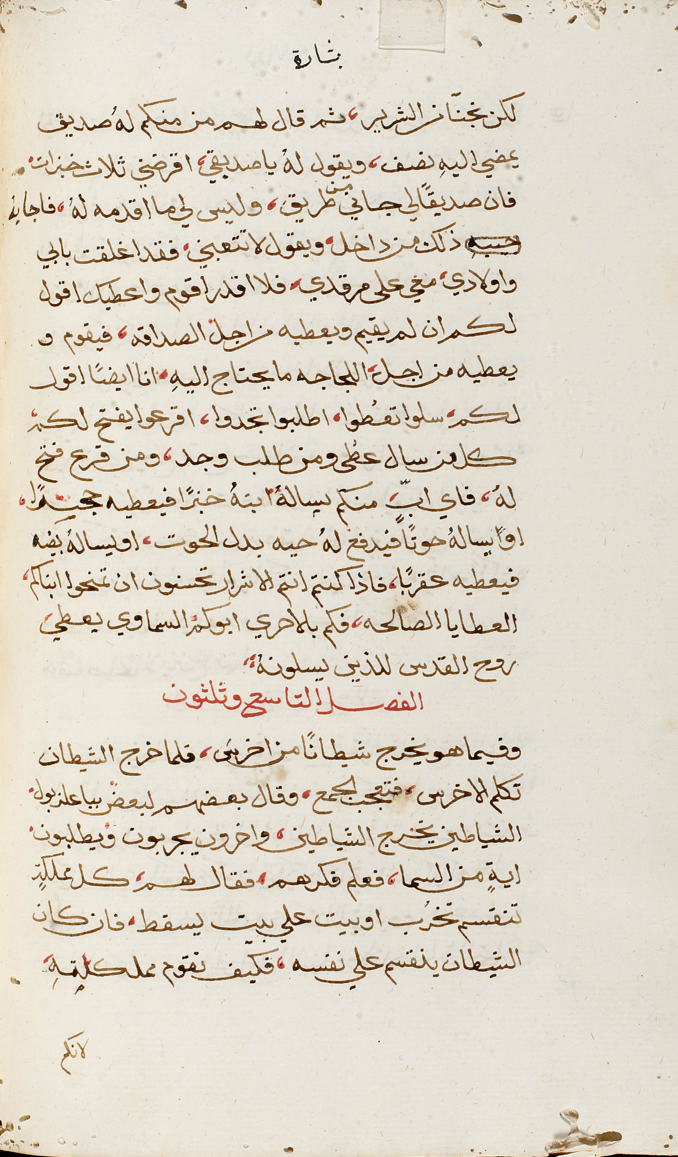 بشارة
لكن نجنّا من الشرير، ثم قال لهم من منكم لهُ صديق
يمضي اليهِ نصف، ويقول لهُ ياصديقي، اقرضني ثلاث خبزات
فان صديقًا لي جاني من طريق، وليس لي ما اقدمه لهُ، فاجابهُ
ذلك من داخل ويقول لا تتعبني، فقد اغلقت بابي
واولادي، معي علي مرقدي، فلا اقدر اقوم واعطيك اقول
لكم ان لم يقيم ويعطيه من اجل الصداقه، فيقوم و
يعطيه من اجل، اللجاجه ما يحتاج اليهِ، انا ايضًا اقول
لكم، سلوا تعُطوا، اطلبوا تجدوا، اقرعوا يفتح لكم
كل من سال عُطي ومن طلب وجد، ومن قرع فتح
لهُ، فاي ابٍّ منكم يسالهُ ابنهُ خبزًا فيعطيه حجرًا،
اوْ يسالهُ حوتًا فيدفع لهُ حيه بدل الحوت، او يسالهُ بيضه
فيعطيه عقربًا، فاذا كنتم انتم الاشرار تحسنون ان تمنحوا ابناكم،
العطايا الصالحه، فكم بالاحري ابوكم السماوي يعطي
روح القدس للذين يسلونهُ،
الفصل التاسع وثلثون
وفيما هو يخرج شيطانًا من اخرس، فلما خرج الشيطان
تكلم الاخرس، فتعجب الجمع، وقال بعضهم لبعض بباعلزبول
الشياطين يخرج الشياطين، واخرون يجربون ويطلبون
ايةٍ من السما، فعلم فكرهم، فقال لهم، كل مملكةٍ
تنقسم تخرُب او بيت علي بيت يسقط، فان كان
الشيطان ينقسم علي نفسه، فكيف تقوم مملكته
لانكم